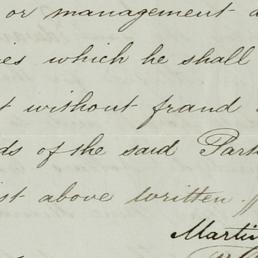 or management
ies which he shall
t without fraud
ds of the said Part
st above written.
Martin